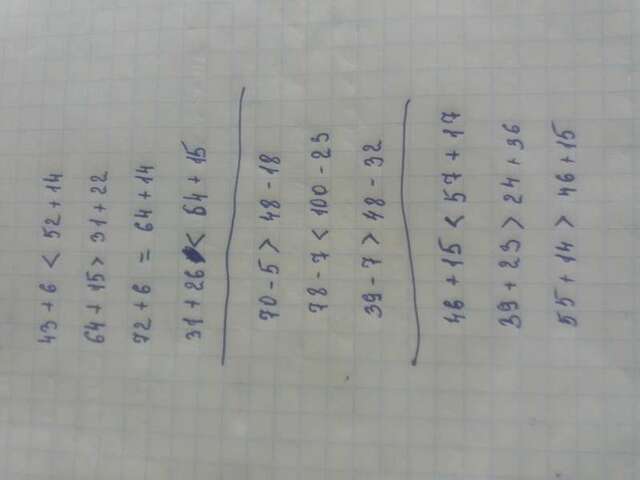 43 + 6 < 52 + 14
64 + 15 > 31 + 22
72 + 6 = 64 + 14
31 + 26 < 64 + 15
70 - 5 > 48 - 18
78 - 7 < 100 - 23
39 - 7 > 48 - 32
46 + 15 < 57 + 17
39 + 23 > 24 + 36
55 + 14 > 46 + 15